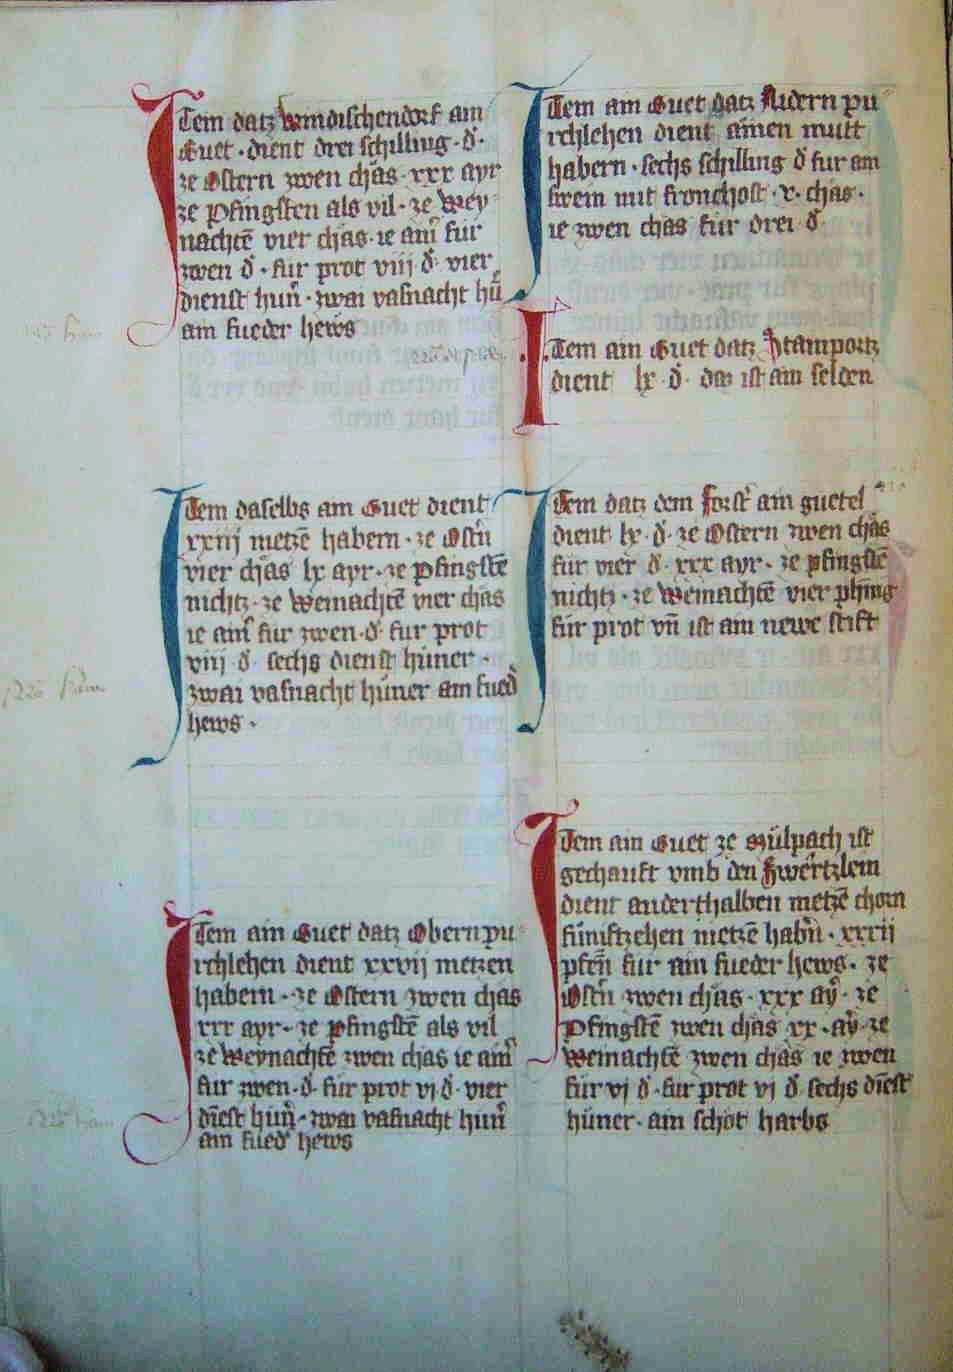 Item datz windischendorf ain
Guet · dient drei schilling · d̄ ·
ze Ostern zwen chäs · xxx ayr
ze Pfingsten als vil · ze Wey
nachtē vier chäs · ie ain̄ für
zwen d̄ · für prot viij d̄ · vier
dienst hun̄ · zwai vasnacht hū̄
ain fueder hews
Item daselbs ain Guet dient
xxiij metzē habern · ze Ostn̄
vier chäs lx ayr · ze Pfingstē
nichtz · ze Weinachtē vier chäs
ie ain̄ für zwen · d̄ · für prot
viij · d̄ · sechs dienst hüner ·
zwai vasnacht hüner ain fued̄
hews ·
Item ain Guet datz Obern pu
rchlehen dient xxvij metzen
habern · ze Ostern zwen chäs
xxx ayr · ze Pfingstē als vil
ze Weynachtē zwen chäs ie ain̄
für zwen · d̄ · für prot vj d̄ · vier
diēst hun̄ · zwai vasnacht hun̄
ain fued̄ hews
Item ain Guet datz Nidern pu
rchlehen dient ainen mutt
habern · sechs schilling d̄ für ain
swein mit fronchost · v · chäs ·
ie zwen chäs für drei d̄
Item ain Guet datz Stamportz
dient lx · d̄ · daz ist ain selden
Item datz dem forst̄ ain guetel
dient lx · d̄ · ze Ostern zwen chäs
für vier d̄ · xxx ayr · ze pfingstē
nichtz · ze Weinachtē vier phn̄ing
für prot vn̄ ist ain newe stift
Item ain Guet ze Mülpach ist
gechauft vmb den Swertzlein
dient anderthalben metzē chorn
fümftzehen metzē habn̄ · xxxii
pfēn für ain fueder hews · ze
Ostn̄ zwen chäs · xxx aȳ · ze
Pfingstē zwen chäs xx · aȳ · ze
Weinachtē zwen chäs ie zwen
für vj d̄ · für prot vj d̄ sechs diēst
hüner · ain schöt harbs